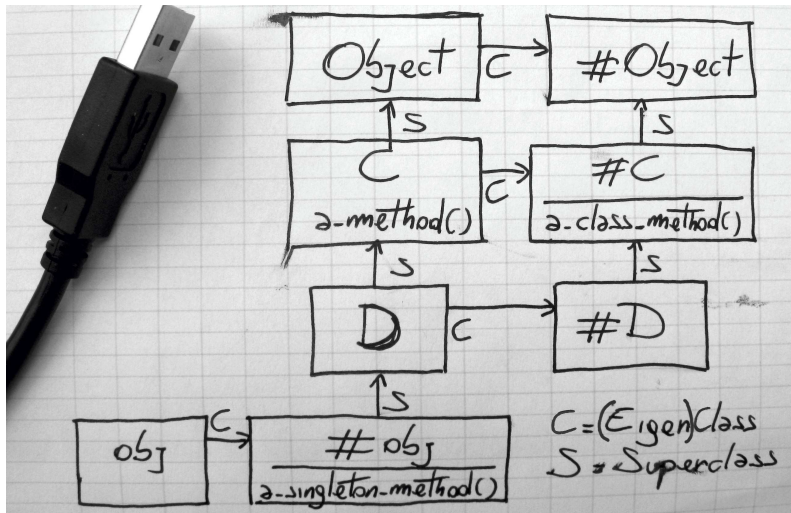 Object
C
#Object
S
S
C
a_method()
C
#C
a_class_method()
S
S
D
C
#D
obj
C
#obj
a_singleton_method()
S
C=(Eigen)Class
S=Superclass